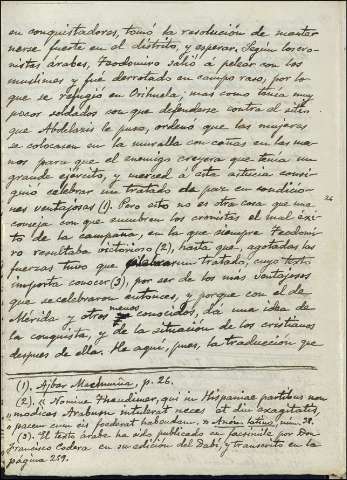 en conquistadores, tomó la resolución de mante-
nerse fuerte en el distrito, y esperar. Según los cro-
nistas árabes, Teodomiro salió á pelear con los
muslimes y fué derrotado en campo raso, por lo
que se refugió en Orihuela; mas como tenía muy
pocos soldados con que defenderse contra el sitio
que Abdelaziz le puso, ordenó que las mujeres
se colocasen en la muralla con cañas en las ma-
nos para que el enemigo creyera que tenía un
grande ejército, y merced á esta astucia consi-
guió celebrar un tratado de paz en condicio-
nes ventajosas (1). Pero esto no es otra cosa que una
conseja con que encubren los cronistas el mal éxi-
to de la campaña, en la que siempre Teodomi-
ro resultaba victorioso (2), hasta que, agotadas las
fuerzas tuvo que celebrar un tratado, cuyo texto
importa conocer (3), por ser de los más ventajosos
que se celebraron entonces, y porque con el de
Mérida y otros menos conocidos, dá una idea de
la conquista, y de la situación de los cristianos
después de ella. He aquí, pues, la traducción que
24
(1). Ajbar Machmuâ, p. 26.
(2). « Nomine Theudimer, qui in Hispaniae partibus non
"modicas Arabum intulerat neces et diu exagitatis,
"pacem cum eis foederat habendam. » Anón. latino, núm. 38.
(3). El texto árabe ha sido publicado en facsímile por Don
Francisco Codera en su edición del Dabí, y transcrito en la
página 259.